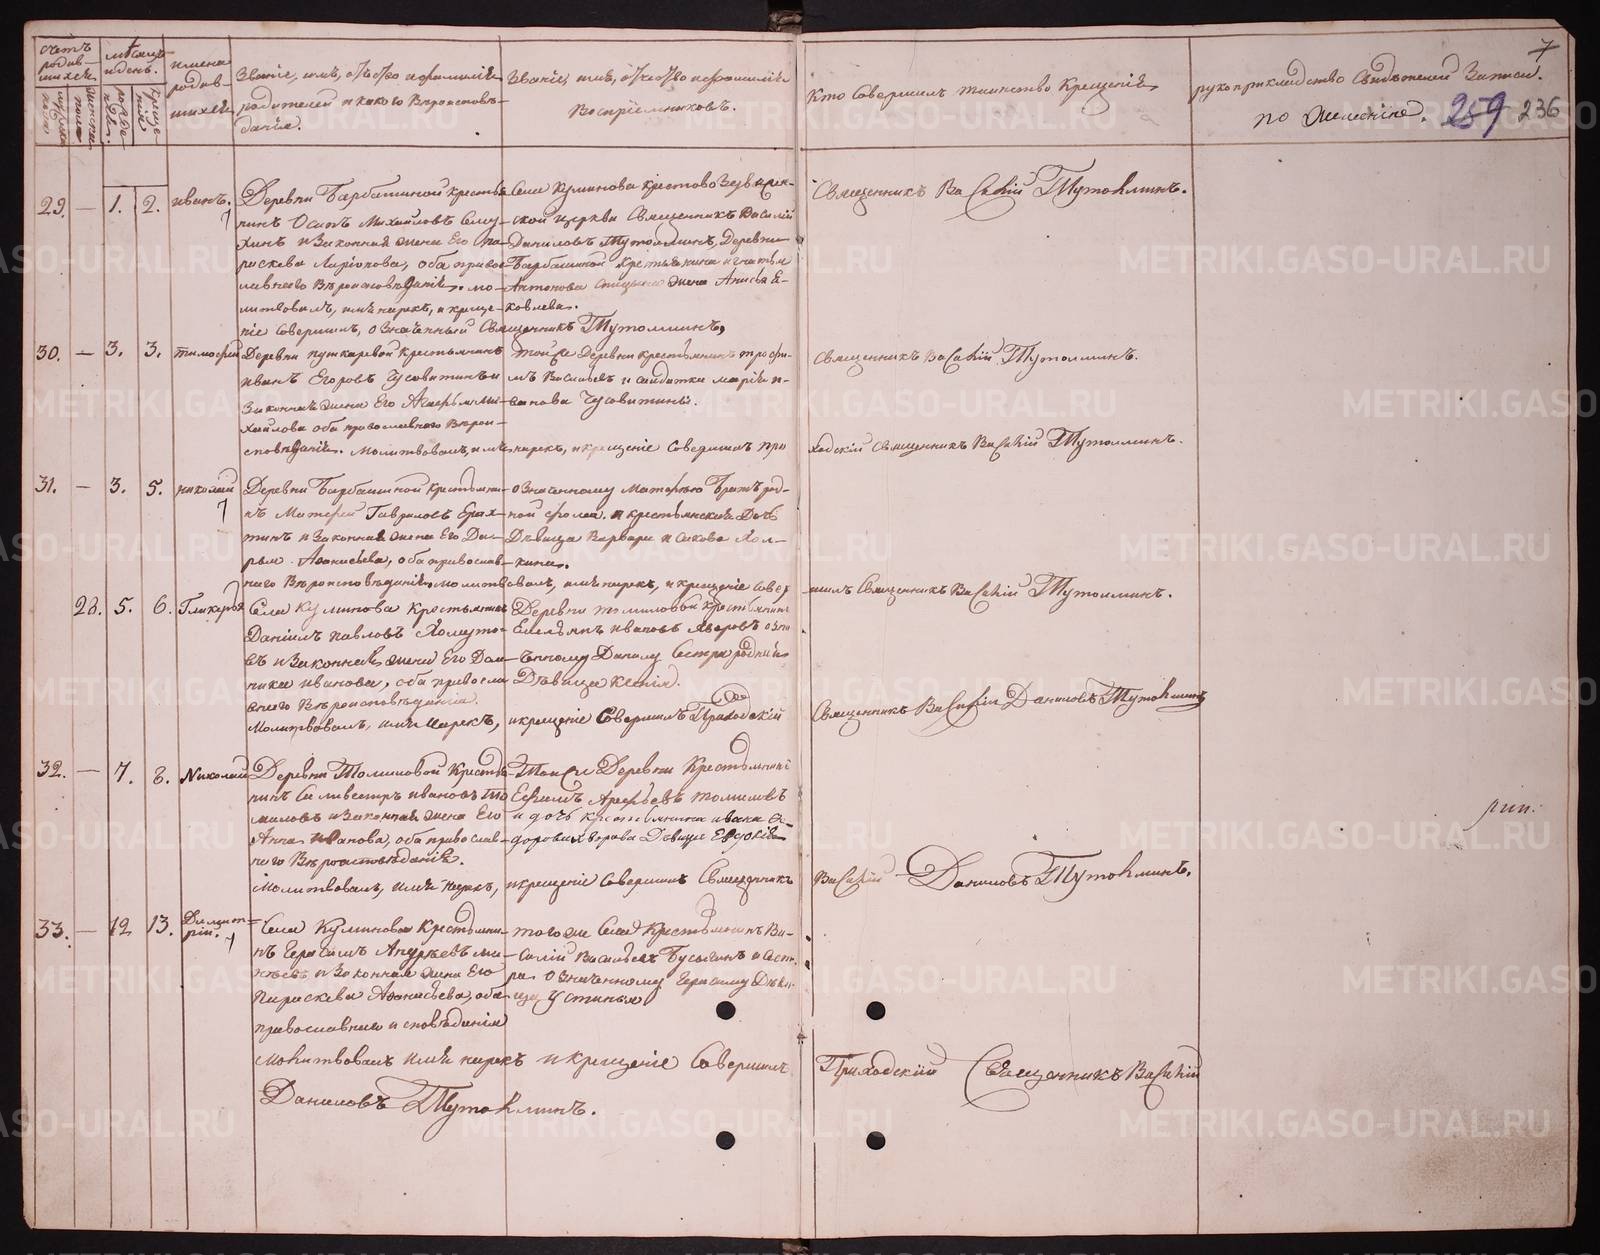 7
259 236
Счетъ родив-шихся
мѣсяцъ и день.
имена родив-шихся
Званіе, имя, отчество и фамилія родителей и какого Вѣроисповѣ-данія.
Званіе, имя, отчество и фамилія Воспріемниковъ.
Кто Совершалъ таинство Крещенія
рукоприкладство Свидѣтелей Записи по желанію.
29. — 1. 2. иванъ.
Деревни Барбашиной Крестья-
нинъ Осипъ Михайловъ
и Законная жена Его Па-
раскева Ларіонова, оба право-
славнаго Вѣроисповѣданія. мо-
литвовалъ, имя нарекъ, и креще-
ніе Совершилъ, означенный Священникъ Тутолминъ,
Села Куминова крестово Воздвижен-
ской церкви Священникъ Василій
Даниловъ Тутолминъ, Деревни
Барбашиной Крестьянина
Антонова Спицына жена Анисья Е-
Священникъ Василій Тутолминъ.
30. — 3. 3. тимофей
Деревни пушкаревой Крестьянинъ
иванъ Егоровъ Чусовитинъ и
Законная жена Его Агафья Ми-
хайлова оба православнаго Вѣрои-
сповѣданія. Молитвовалъ, имя нарекъ, и крещеніе Совершилъ при
тойже Деревни крестьянинъ трофи-
мъ Васильевъ и Солдатка марія и-
ванова Чусовитины.
Священникъ Василій Тутолминъ.
ходскій Священникъ Василій Тутолминъ.
31. — 3. 5. николай
Деревни Барбашиной Крестьяни-
нъ Матфей Гавриловъ
и Законная жена Его Да-
рья Афанасьева, оба православ-
наго Вѣроисповѣданія. молитвовалъ, имя нарекъ, и крещеніе Совер
Означенному Матфею Братъ род-
ной фолей. и крестьянская Дочь
Дѣвица Варвара Исакова Хол-
кина.
шилъ Священникъ Василій Тутолминъ.
28. 5. 6. Гликерія
Села Куминова Крестьянинъ
Даніилъ павловъ Хомуто-
въ и Законная жена Его Дом-
ника иванова, оба правосла
внаго Вѣроисповѣданія.
Молитвовалъ, имя нарекъ, и крещеніе Совершилъ Приходскій
Деревни томиловой Крестьянинъ
Емельянъ ивановъ Яворовъ озна
ченному Данилу Сестра родная
Дѣвица Ксенія.
Священникъ Василій Даниловъ Тутолминъ
32. — 7. 8. Николай
Деревни Томиловой Крестья-
нинъ Силивестръ ивановъ То
миловъ и Законная жена Его
Анна иванова, оба православ-
наго Вѣроисповѣданія.
Молитвовалъ, имя нарекъ, и крещеніе Совершилъ Священникъ
Тойже Деревни Крестьянинъ
Ефимъ Арефьевъ томиловъ
и дочь крестьянина ивана Фе-
дорова яворова Дѣвица Евдокія
Василій Даниловъ Тутолминъ.
рип.
33. — 12 13. Димит-рій.
Села Куминова Крестьяни-
нъ Герасимъ Андреевъ ми-
нѣевъ и Законная жена Его
Параскева Афанасьева, оба
православнаго исповѣданія
молитвовалъ имя нарекъ и крещеніе Совершилъ
Даниловъ Тутолминъ.
тогоже Села Крестьянинъ Ва-
силій Васильевъ Бусыгинъ и Сест-
ра Означенному Герасиму Дѣви-
ца Устинья
Приходскій Священникъ Василій